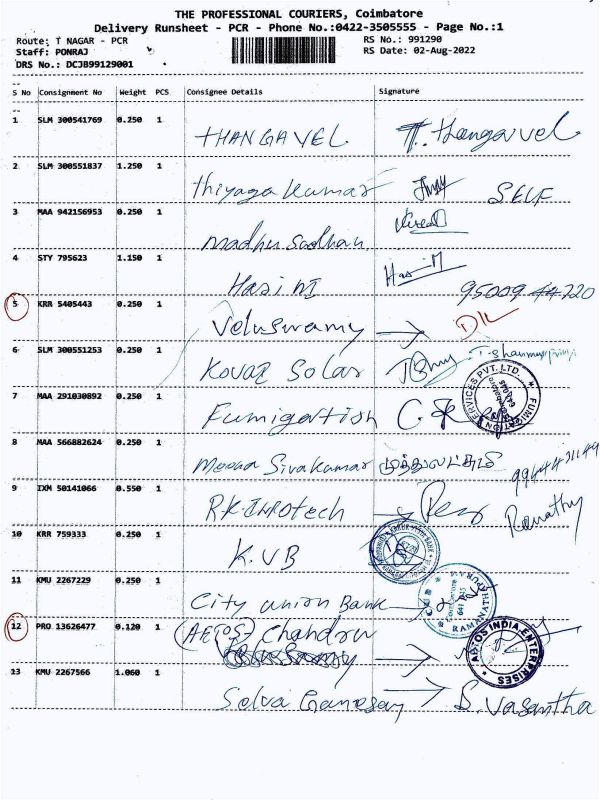 THE PROFESSIONAL COURIERS, Coimbatore
Delivery Runsheet - PCR - Phone No.:0422-3505555 - Page No.:1
Route: T NAGAR - PCR RS No.: 991290
Staff: PONRAJ RS Date: 02-Aug-2022
DRS No.: DCJB99129001
S No Consignment No Weight PCS Consignee Details Signature
1 SLM 300541769 0.250 1 THANGAVEL T. Thangavel
2 SLM 300551837 1.250 1 Thiyaga Kumar SELF
3 MAA 942156953 0.250 1 Madhu Sudhan
4 STY 795623 1.150 1 Hasini Hasini
95009 44220
5 KRR 5405443 0.250 1 Veluswamy
6 SLM 300551253 0.250 1 Kovai Solar
7 MAA 291030892 0.250 1 Fumigation
FUMIGATION SERVICES PVT. LTD.
8 MAA 566882624 0.250 1 Meena Sivakumar முத்துலட்சுமி
9 IXM 50141066 0.550 1 RK Infotech
10 KRR 759333 0.250 1 K.V.B
11 KMU 2267229 0.250 1 City union Bank
RAMANATHAPURAM
12 PRO 13626477 0.120 1 AETOS Chandru
INDIA ENTERPRISES
13 KMU 2267566 1.060 1 Selva Ganesan S. Vasantha